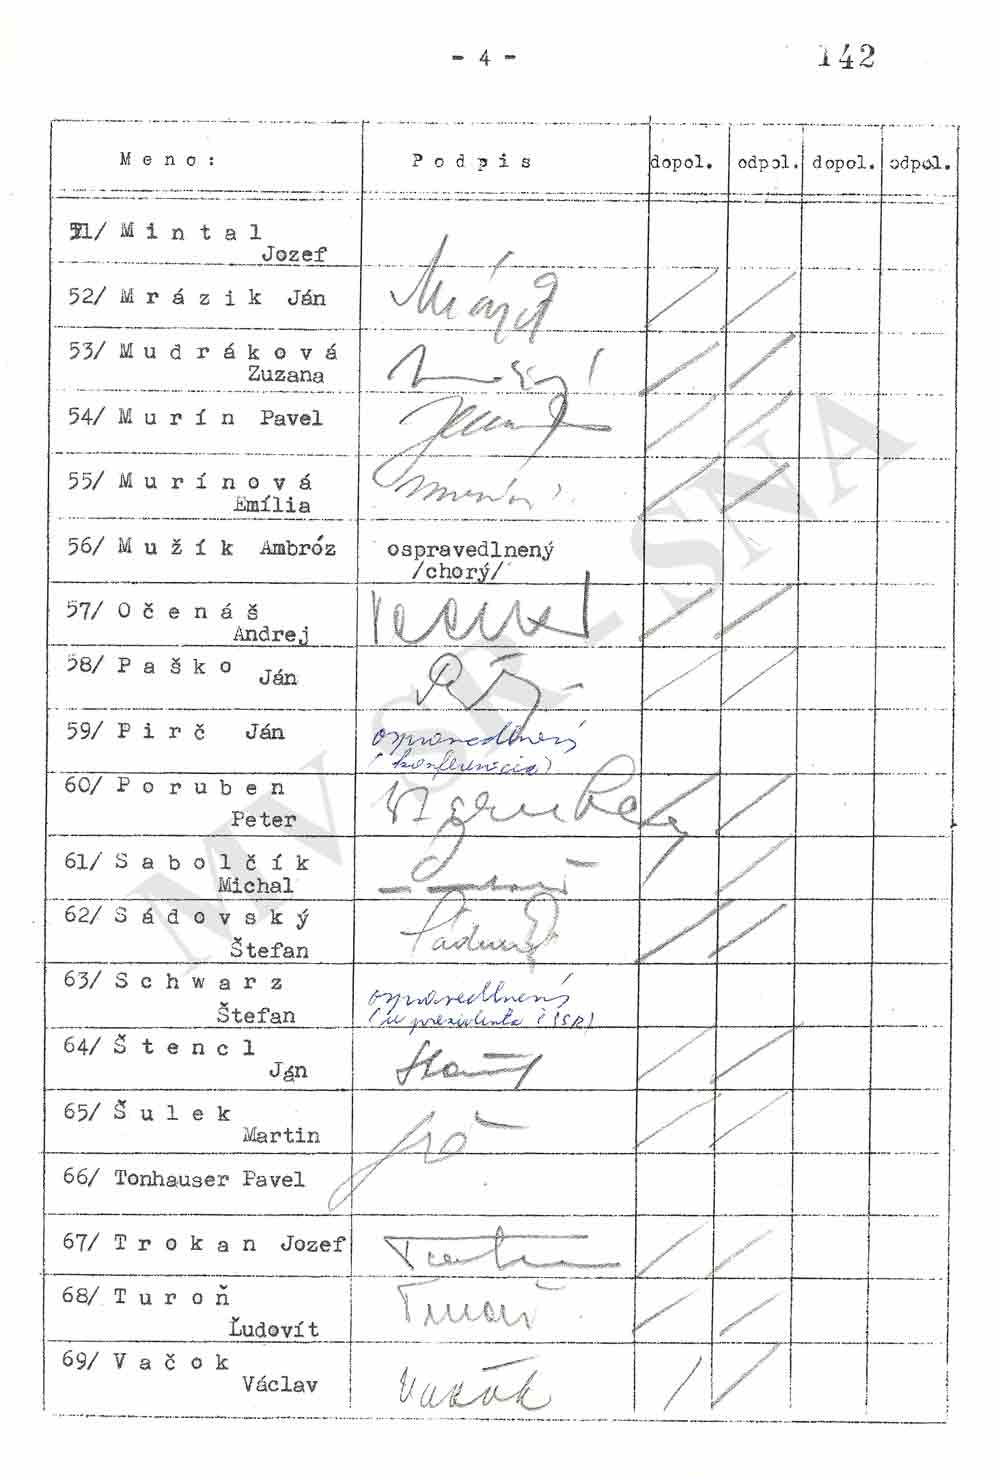 - 4 -
142
Meno: Podpis dopol. odpol. dopol. odpol.
51/ Mintal
Jozef
52/ Mrázik Ján
53/ Mudráková
Zuzana
54/ Murín Pavel
55/ Murínová
Emília
56/ Mužík Ambróz ospravedlnený
/chorý/
57/ Očenáš
Andrej
58/ Paško
Ján
59/ Pirč Ján ospravedlnený
(konferencia)
60/ Poruben
Peter
61/ Sabolčík
Michal
62/ Sádovský
Štefan
63/ Schwarz ospravedlnený
Štefan (u prezidenta ČSSR)
64/ Štencl
Ján
65/ Šulek
Martin
66/ Tonhauser Pavel
67/ Trokan Jozef
68/ Turoň
Ľudovít
69/ Vačok
Václav Vačok
MV SR - SNA